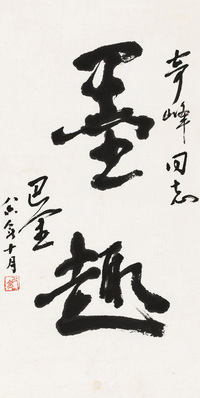 奇峰同志
墨趣
巴金
八六年十月